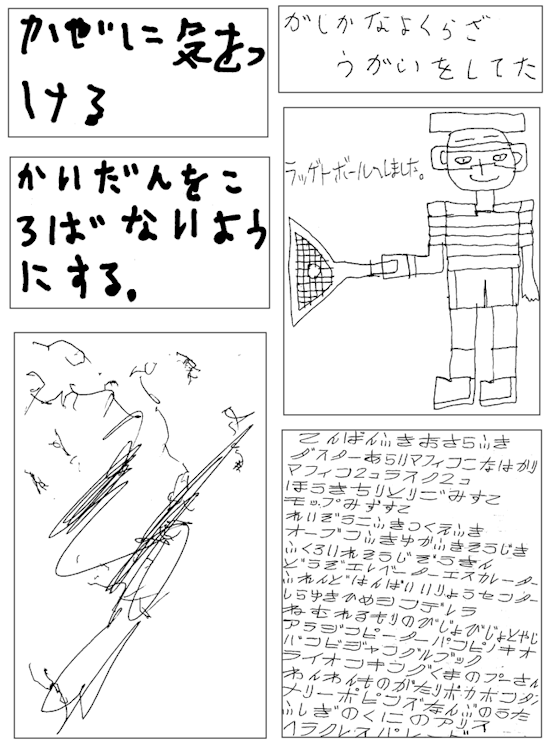 かぜに気をつ
ける
かいだんをこ
ろばないよう
にする。
がしかなよくらざ
うがいをしてた
ラッゲトボールへしました。
てんばんふきおさらふき
ダスターあらりマフィンこなはかり
マフィン2コラスク2コ
ほうきちりとりごみすて
モップみずすて
れいぞうこふきつくえふき
オーブンふきゆかふきそうじき
ふくろいれそうじぞうきん
どうぞエレベーターエスカレーター
ふれんどはんばいいりょうセンター
しらゆきひめシンデレラ
ねむれるもりのびじょびじょとやじ
アラジンピーターパンピノキオ
バンビジャングルブック
ライオンキングくまのプーさん
わんわんものがたりポカホンタ
メリーポピンズなんぶのうた
ふしぎのくにのアリス
ヘラクレスパレード